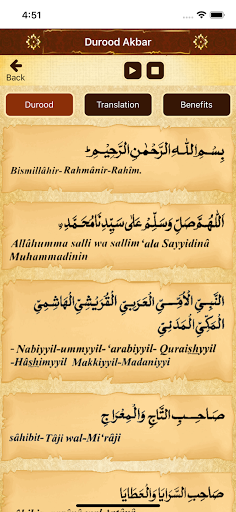 4:51
Durood Akbar
Back
Durood
Translation
Benefits
بِسْمِ اللّٰهِ الرَّحْمٰنِ الرَّحِيْمِ
Bismillâhir-Rahmânir-Rahîm.
اَللّٰهُمَّ صَلِّ وَسَلِّمْ عَلٰى سَيِّدِنَا مُحَمَّدِنِ
Allâhumma salli wa sallim ‘ala Sayyidinâ
Muhammadinin
النَّبِيِّ الْاُمِّيِّ الْعَرَبِيِّ الْقُرَيْشِيِّ الْهَاشِمِيِّ
الْمَكِّيِّ الْمَدَنِيِّ
- Nabiyyil-ummyyil-‘arabiyyil- Quraishyyil
-Hâshimyyil Makkiyyil-Madaniyyi
صَاحِبِ التَّاجِ وَالْمِعْرَاجِ
sâhibit- Tâji wal-Mi‘râji
صَاحِبِ السَّرَايَا وَالْعَطَايَا